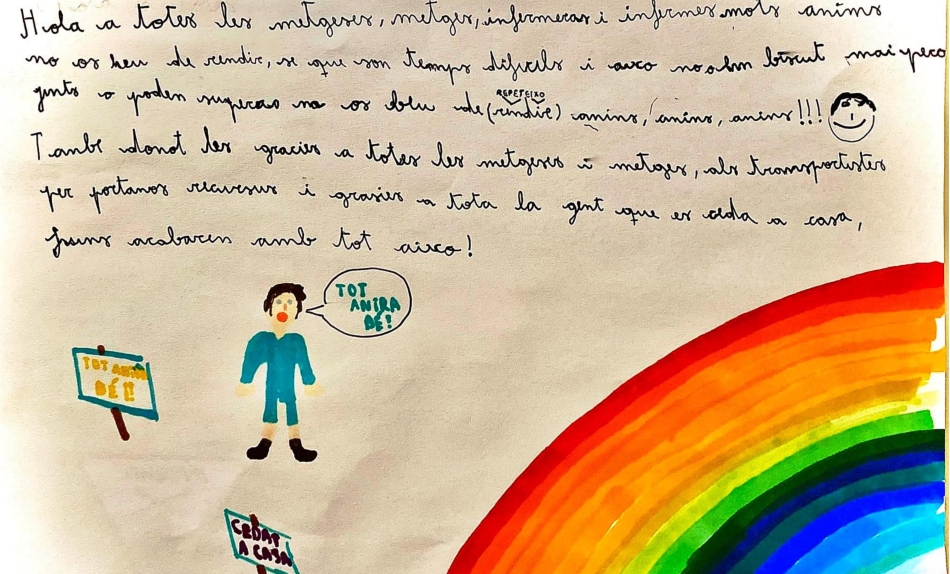 Hola a totes les metgeses, metges, infermeras i infermes mols anims
no os heu de rendir, se que son temps dificils i aixo no o hem biscut mai pero
junts o poden superas no os heu de (rendir) anims, anims, anims!!!
REPETEIXO
Tambe donot les gracies a totes les metgeses i metges, als transportistes
per portanos recursus i grasies a tota la gent que es ceda a casa,
Juns acabarem amb tot aixo!
TOT
ANIRA
BÉ!
TOT ANIRÀ
BÉ!!
CEDAT
A CASA